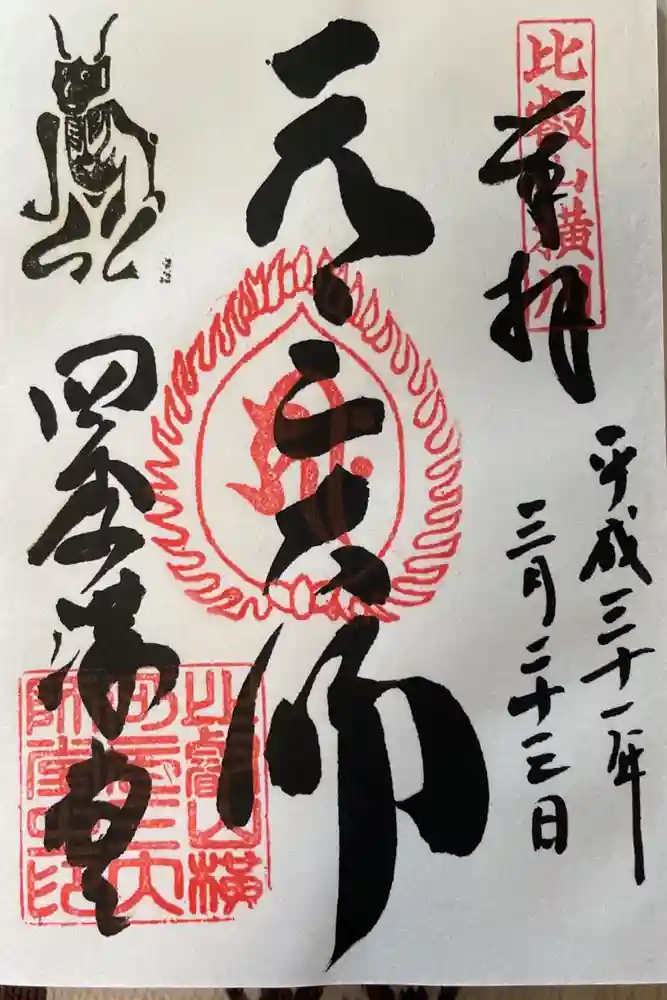 比叡山横川
奉拝
平成三十一年
三月二十三日
元三大師
四季講堂
比叡山横
河元三大
師堂之印